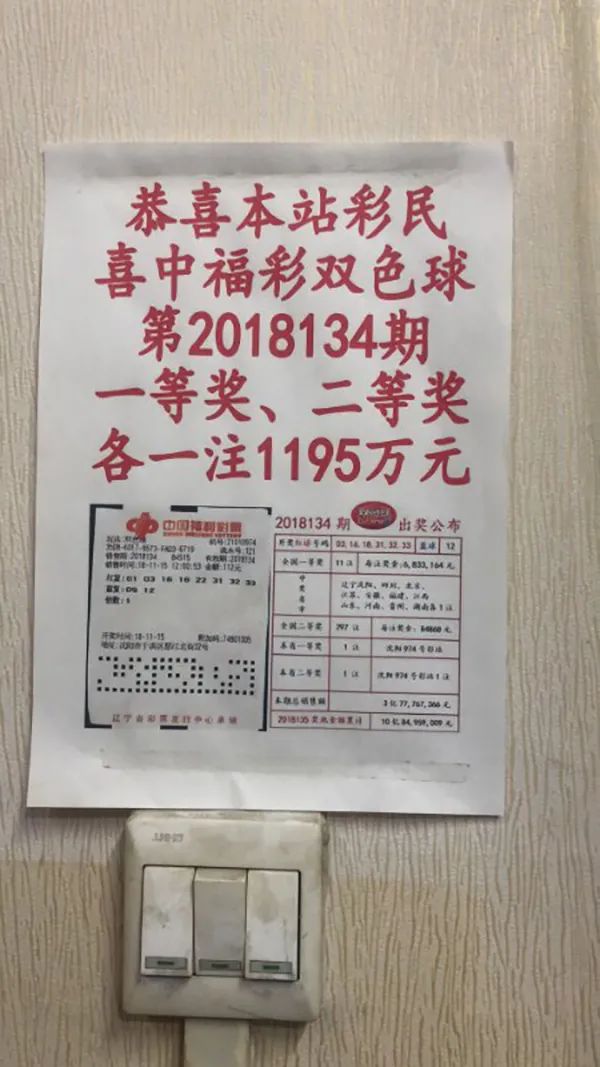 恭喜本站彩民
喜中福彩双色球
第2018134期
一等奖、二等奖
各一注1195万元
中国福利彩票
CHINA WELFARE LOTTERY
机号:21010974
流水号:121
销售期:2018134
84515
有效期:2018134
销售时间:18-11-15 12:00:53 金额:112元
红复:01 03 16 18 22 31 32 33
蓝复:09 12
倍数:1
开奖时间:18-11-15
附加码:74801005
辽宁省彩票发行中心承销
2018134 期
出奖公布
开奖红球号码 03,16,18,31,32,33 蓝球 12
全国一等奖 11 注 每注奖金:6,833,164 元
中奖省市
辽宁沈阳、四川、北京、
江苏、安徽、福建、江西
山东、河南、贵州、湖南各1注
全国二等奖 297 注 每注奖金: 84868 元
本省一等奖 1 注 沈阳 974 号彩站
本省二等奖 1 注 沈阳 974 号彩站 1 注
本期总销售额 3 亿 77,767,366 元
2018135 奖池金额累计 10 亿 84,959,009 元